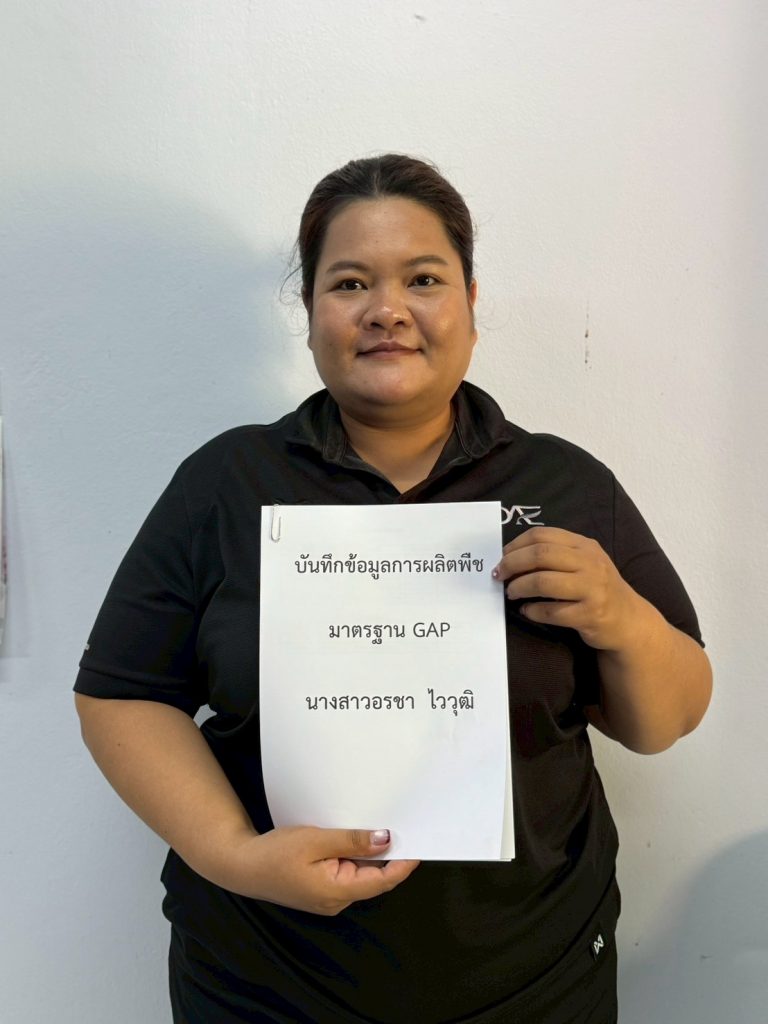 บันทึกข้อมูลการผลิตพืช
มาตรฐาน GAP
นางสาวอรชา ไววุฒิ